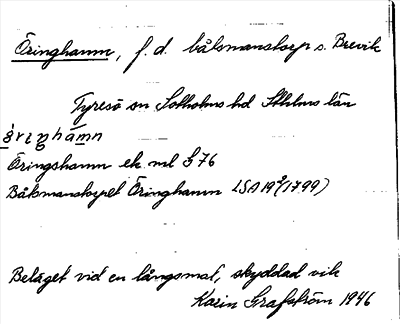 Öringhamn, f.d. båtsmanstorp s. Brevik
Tyresö sn Sotholms hd Sthlms län
Öringshamn ek. ml G 76
Båtsmanstorpet Öringhamn LSA 19 (1799)
Beläget vid en långsmal, skyddad vik
Karin Grafström 1946